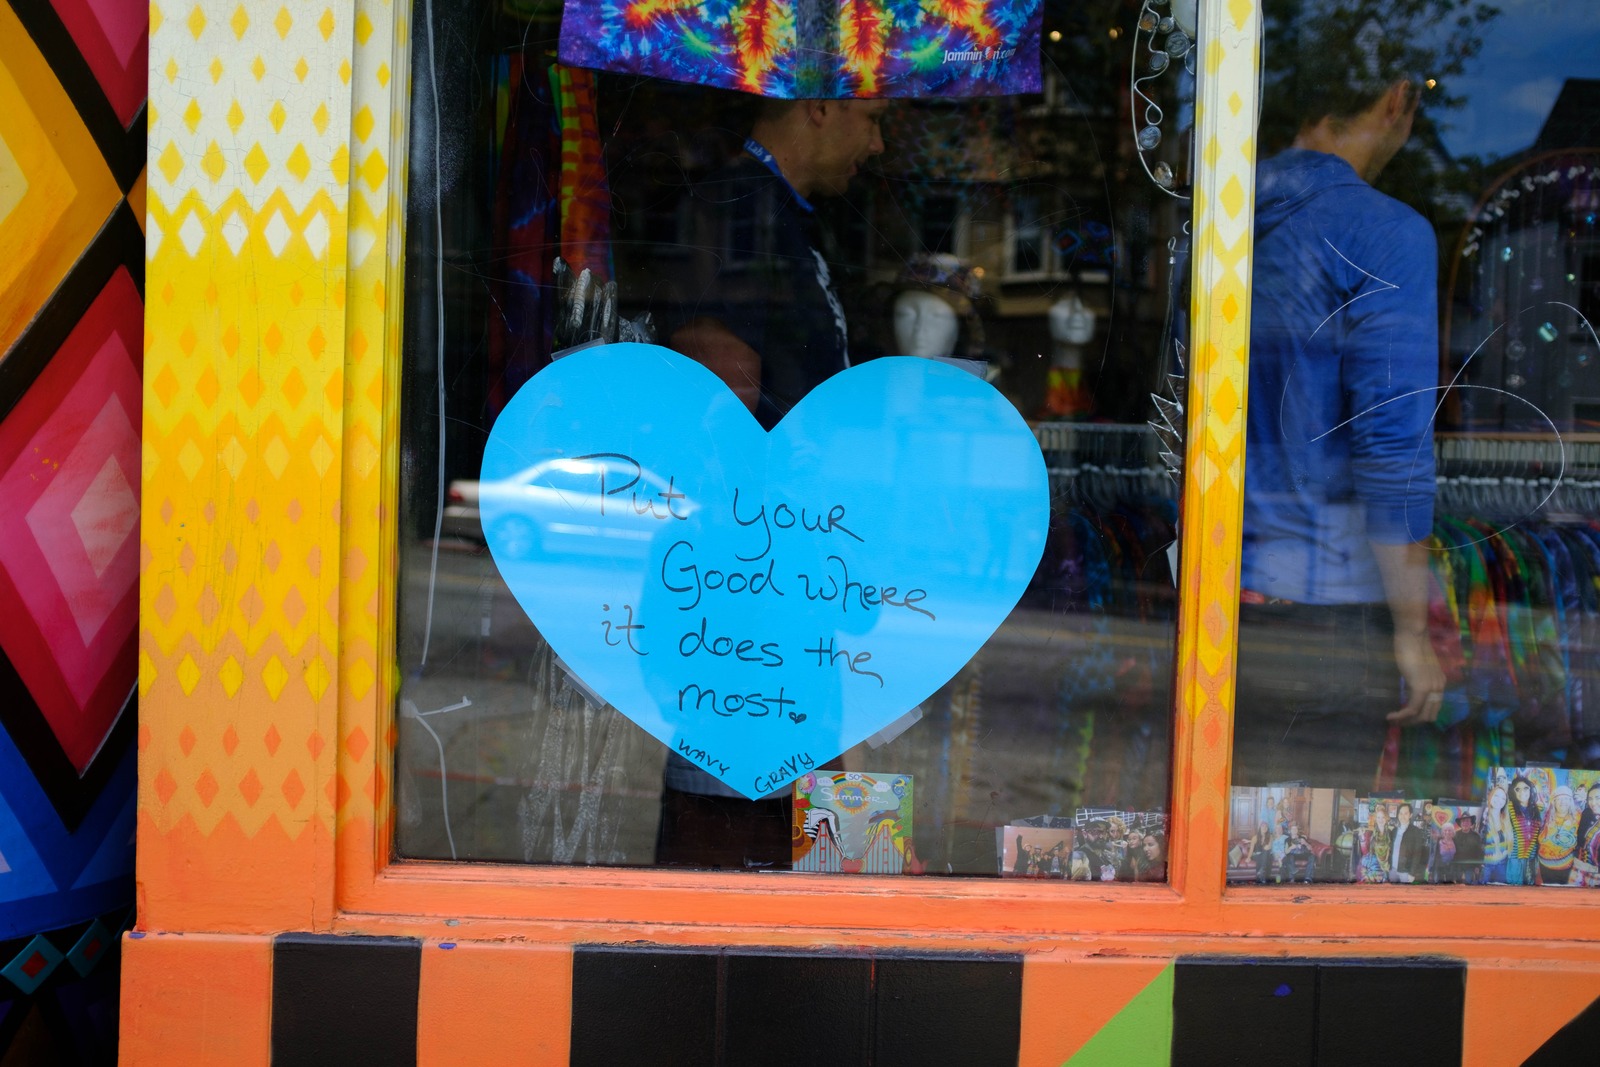 Jammin On.com
Lab
Put your
Good where
it does the
most.
WAVY GRAVY
50
Summer